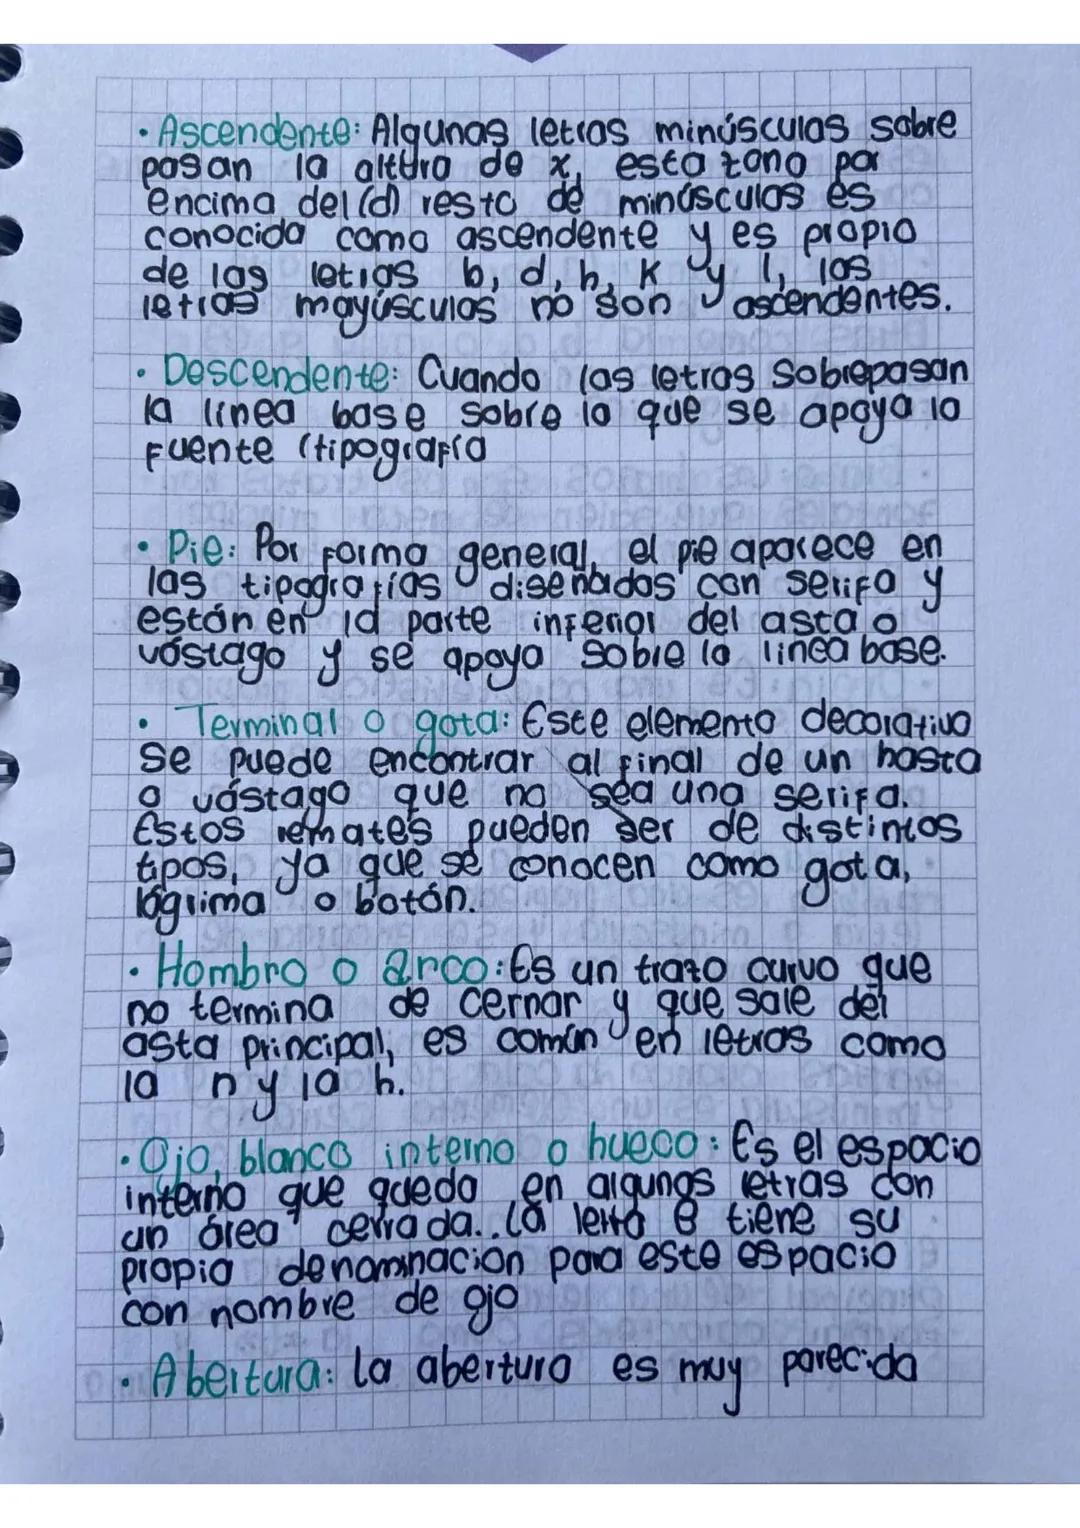 · Ascendente: Algunas letras minúsculas sobre
pasan la altura de x, esta zona por
encima del (d) resto de minúsculas es
conocida como ascendente y es propio
de las letras b, d, h, k y l, las
letras mayúsculas no son ascendentes.
· Descendente: Cuando las letras sobrepasan
la línea base sobre la que se apoya la
fuente (tipografía
· Pie: Por forma general, el pie aparece en
las tipografías diseñadas con serifa y
están en la parte inferior del asta o
vástago y se apoya sobre la línea base.
· Terminal o gota: Este elemento decorativo
se puede encontrar al final de un hasta
o vástago que no sea una serifa.
Estos remates pueden ser de distintos
tipos, ya que se conocen como gota,
lágrima o botón.
· Hombro o arco: Es un trazo curvo que
no termina de cernar y que sale del
asta principal, es común en letras como
la n y la h.
· Ojo, blanco interno o hueco: Es el espacio
interno que queda en algunas letras con
un área cerrada.. La letra e tiene su
propia denominacion para este espacio
con nombre de ojo
· Abertura: la abertura es muy parecida